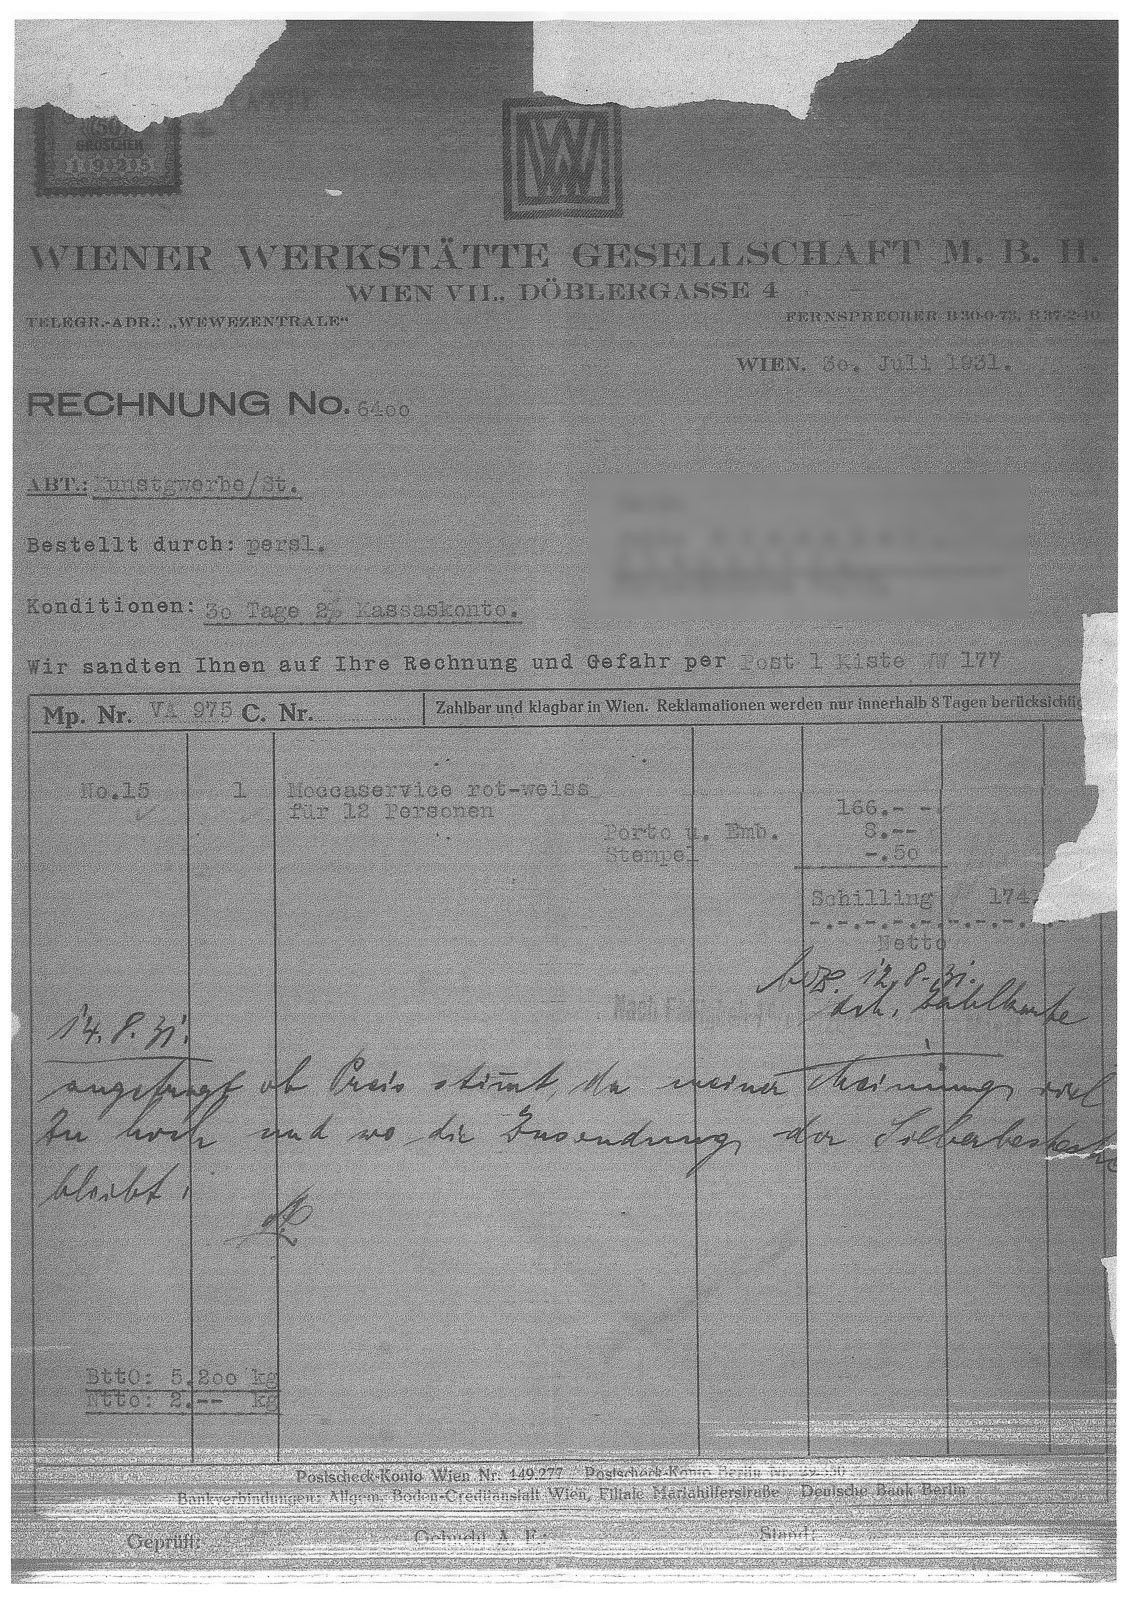 50
GROSCHEN
1925
WW
WIENER WERKSTÄTTE GESELLSCHAFT M. B. H.
WIEN VII., DÖBLERGASSE 4
TELEGR.-ADR.: „WEWEZENTRALE“
FERNSPRECHER B 30-0-73, B 37-2-40
WIEN, 3o. Juli 1931.
RECHNUNG No. 64oo
ABT.: Kunstgwerbe/St.
Bestellt durch: persl.
Konditionen: 3o Tage 2% Kassaskonto.
Wir sandten Ihnen auf Ihre Rechnung und Gefahr per Post 1 Kiste WW 177
Mp. Nr. VA 975 C. Nr. Zahlbar und klagbar in Wien. Reklamationen werden nur innerhalb 8 Tagen berücksichtig
No.15 1 Moccaservice rot-weiss
für 12 Personen 166.--
Porto u. Emb. 8.--
Stempel -.5o
Schilling 174.
Netto
bez. 12.8.31.
dch. Zahlkarte
Nach
14.8.31.
angefragt ob Preis stimmt, da meiner Meinung viel
zu hoch und wo die Zusendung der Silberbestecke
bleibt!
BttO: 5.2oo kg
Ntto: 2.-- kg
Postscheck-Konto Wien Nr. 149.277 Postscheck-Konto Berlin Nr.
Bankverbindungen: Allgem. Boden-Creditanstalt Wien, Filiale Mariahilferstraße Deutsche Bank Berlin
Geprüft: Gebucht A. E.: Stand: